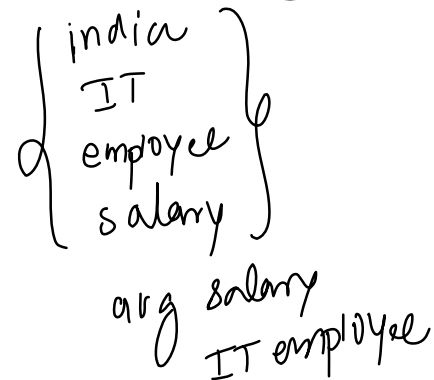 india
IT
employee
salary
avg salary
IT employee